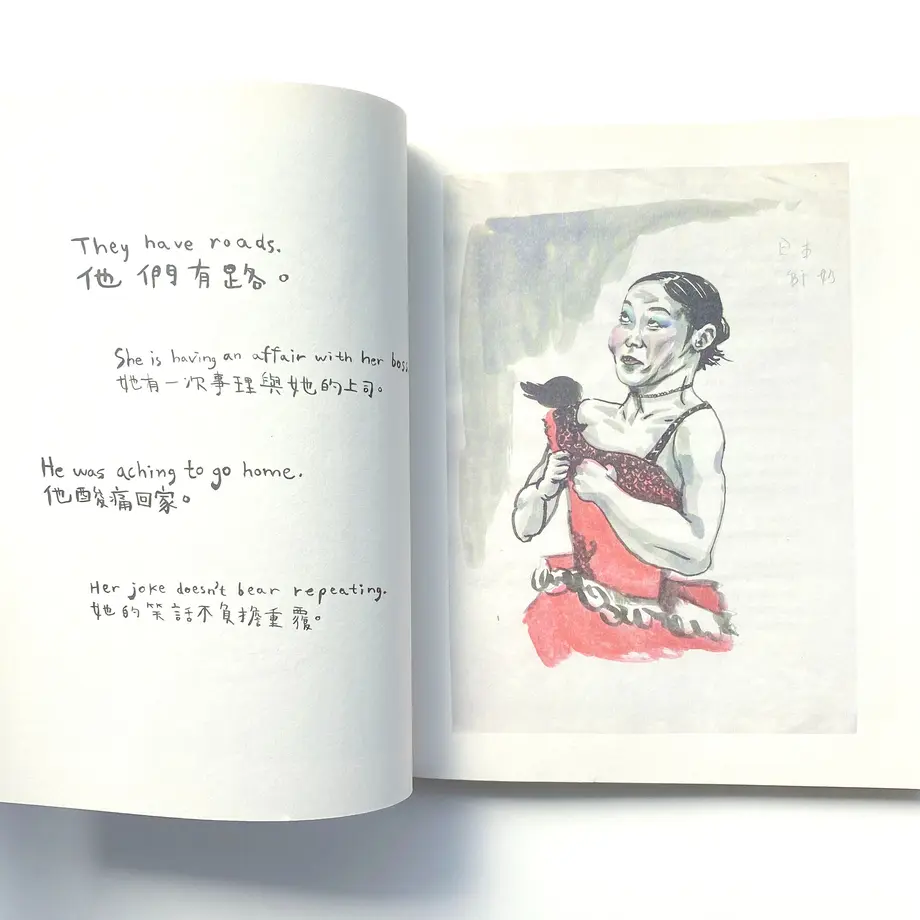 They have roads.
他們有路。
She is having an affair with her boss
她有一次事理與她的上司。
He was aching to go home.
他酸痛回家。
Her joke doesn't bear repeating.
她的笑話不負擔重覆。